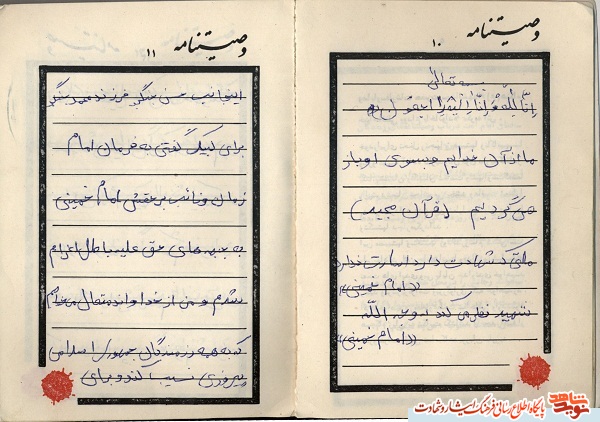 وصیتنامه ۱۰
بسمه تعالی
إنّا لِلّه وَ إنّا إلَیهِ راجِعُون
ما از آن خدایم و بسوی او باز
می گردیم (قرآن مجید)
ملتی که شهادت دارد اسارت ندارد
«امام خمینی»
شهید نظر می کند به وجه الله
«امام خمینی»
وصیتنامه ۱۱
اینجانب حسن سنگر فرزند محمد سنگر
برای لبیک گفتن به فرمان امام
زمان و نائب بر حقش امام خمینی
به جبهه های حق علیه باطل اعزام
شدم و من از خداوند متعال می خواهم
که به همه رزمندگان جمهوری اسلامی
پیروزی نصیب کند و برای
نوید شاهد
پایگاه اطلاع رسانی فرهنگ ایثار و شهادت